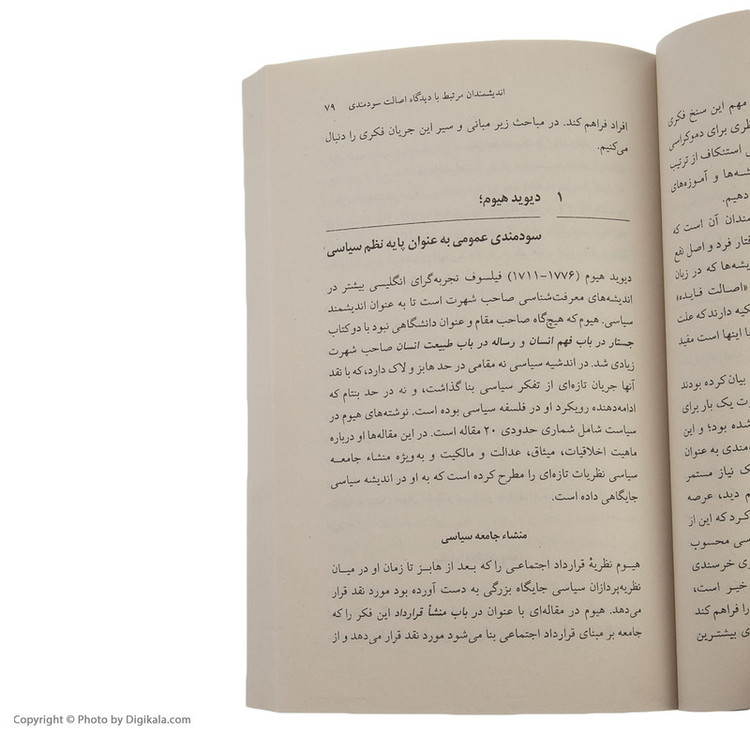 اندیشمندان مرتبط با دیدگاه اصالت سودمندی ۷۹
افراد فراهم کند. در مباحث زیر مبانی و سیر این جریان فکری را دنبال
می‌کنیم.
۱ دیوید هیوم؛
سودمندی عمومی به عنوان پایه نظم سیاسی
دیوید هیوم (۱۷۷۶-۱۷۱۱) فیلسوف تجربه‌گرای انگلیسی بیشتر در
اندیشه‌های معرفت‌شناسی صاحب شهرت است تا به عنوان اندیشمند
سیاسی. هیوم که هیچ‌گاه صاحب مقام و عنوان دانشگاهی نبود با دو کتاب
جستار در باب فهم انسان و رساله در باب طبیعت انسان صاحب شهرت
زیادی شد. در اندشیه سیاسی نه مقامی در حد هابز و لاک دارد، که با نقد
آنها جریان تازه‌ای از تفکر سیاسی بنا گذاشت، و نه در حد بنتام که
ادامه‌دهنده رویکرد او در فلسفه سیاسی بوده است. نوشته‌های هیوم در
سیاست شامل شماری حدودی ۲۰ مقاله است. در این مقاله‌ها او درباره
ماهیت اخلاقیات، میثاق، عدالت و مالکیت و به‌ویژه منشاء جامعه
سیاسی نظریات تازه‌ای را مطرح کرده است که به او در اندیشه سیاسی
جایگاهی داده است.
منشاء جامعه سیاسی
هیوم نظریهٔ قرارداد اجتماعی را که بعد از هابز تا زمان او در میان
نظریه‌پردازان سیاسی جایگاه بزرگی به دست آورده بود مورد نقد قرار
می‌دهد. هیوم در مقاله‌ای با عنوان در باب منشأ قرارداد این فکر را که
جامعه بر مبنای قرارداد اجتماعی بنا می‌شود مورد نقد قرار می‌دهد و از
مهم این سنخ فکری
نظری برای دموکراسی
استنکاف از ترتیب
شه‌ها و آموزه‌های
دهیم.
مندان آن است که
فتار فرد و اصل نفع
یشه‌ها که در زبان
«اصالت فایده»
کیه دارند که علت
ا اینها است مفید
بیان کرده بودند
ت یک بار برای
شده بود؛ و این
دمندی به عنوان
ک نیاز مستمر
م دید، عرصه
کرد که این از
سی محسوب
ری خرسندی
خیر است،
را فراهم کند
ی بیشترین
Copyright © Photo by Digikala.com